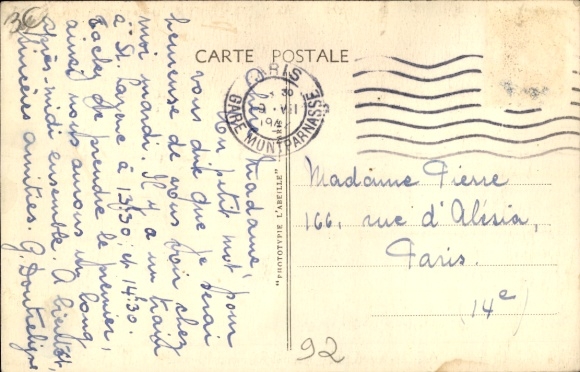 36
CARTE POSTALE
PARIS
GARE MONTPARNASSE
30
VII
Chère Madame,
Un petit mot pour
vous dire que je serai
heureuse de vous voir chez
moi mardi. Il y a un train
à St Lazare à 13.30 et 14.30.
Tachez de prendre le premier,
ainsi nous aurons un long
après-midi ensemble. A bientôt,
amitiés. G.
"PHOTOTYPIE L'ABEILLE"
Madame Pierre
166, rue d'Alésia,
Paris.
(14e)
92